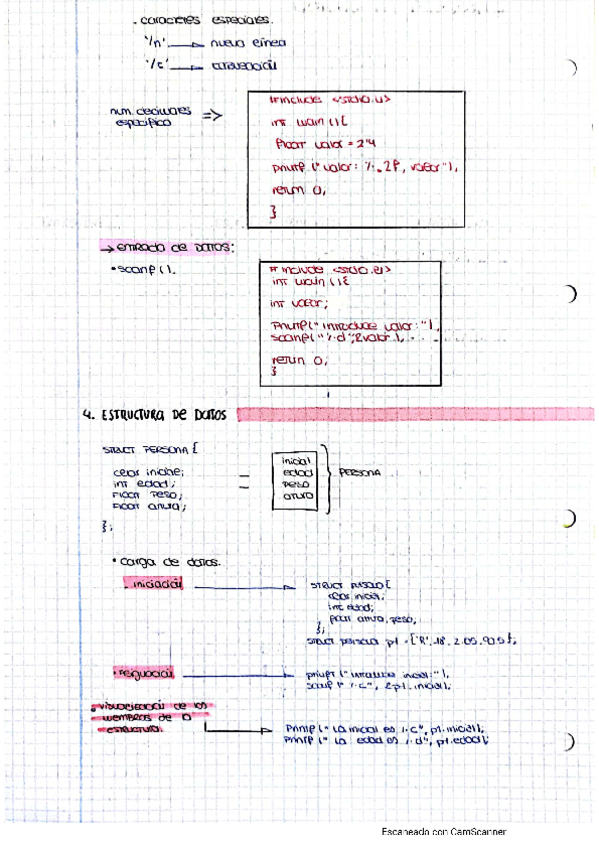 . caracteres especiales.
'/n' → nueva línea
'/t' → tabulación
num. decimales => 
específico
#include <stdio.h>
int main () {
float valor = 2'4
printf ("valor: %.2f, valor");
return 0;
}
→ entrada de datos:
• scanf ().
#include <stdio.h>
int main () {
int valor;
Printf ("introduce valor: ");
scanf ("%d", &valor);
return 0;
}
4. ESTRUCTURA DE DATOS
STRUCT PERSONA {
char inicial;
int edad;
float peso;
float altura;
};
=
inicial
edad
peso
altura
PERSONA
• Carga de datos.
. iniciación →
STRUCT PERSONA {
char inicial;
int edad;
float altura, peso;
};
STRUCT persona p1 = {'R', 18, 2.05, 90.5};
• Asignación →
printf ("introduce inicial: ");
scanf ("%c", &p1.inicial);
• visualización de los
miembros de la
estructura. →
Printf (" La inicial es %c", p1.inicial);
Printf (" La edad es %d", p1.edad);
Escaneado con CamScanner